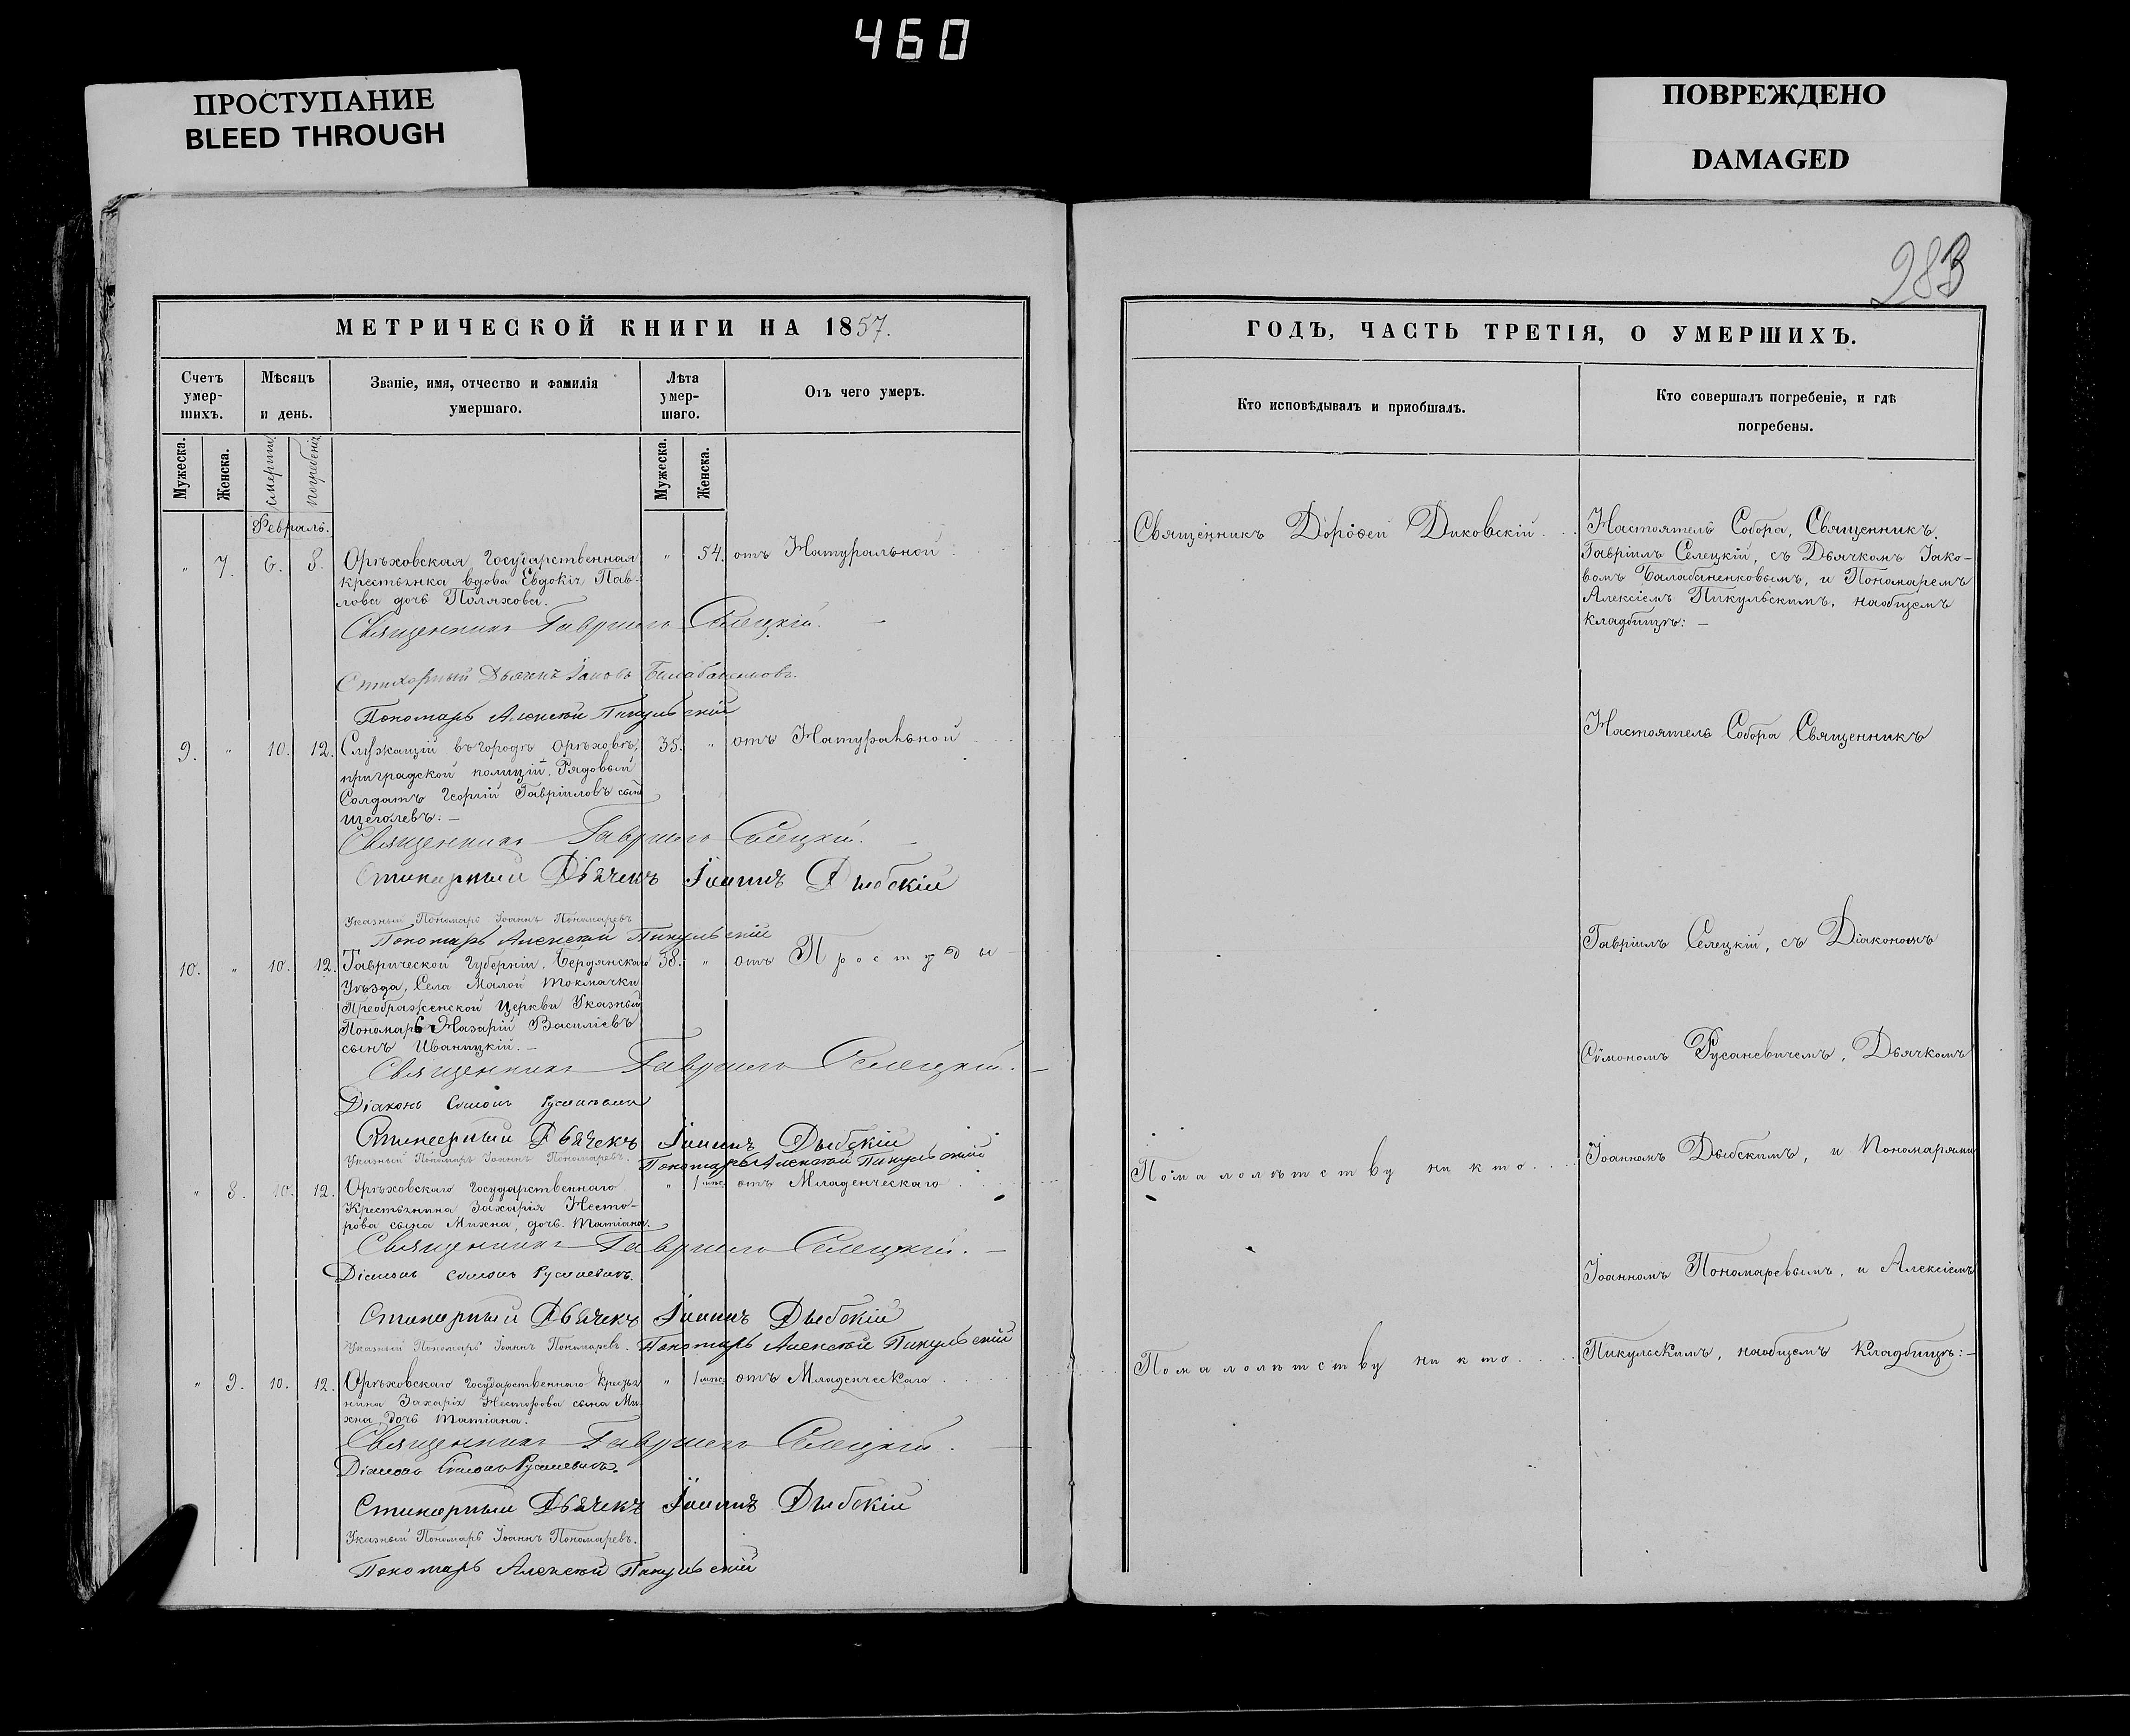 460
ПРОСТУПАНИЕ
BLEED THROUGH
ПОВРЕЖДЕНО
DAMAGED
283
МЕТРИЧЕСКОЙ КНИГИ НА 1857.
Счетъ умер-шихъ.
Мѣсяцъ и день.
Званіе, имя, отчество и фамилія умершаго.
Лѣта умер-шаго.
Отъ чего умеръ.
Мужеска.
Женска.
смерти
погребенія
Мужеска.
Женска.
Февраль.
" 7. 6. 8. Орѣховская Государственная " 54. отъ Натуральной
крестьянка вдова Евдокія Пав-
лова дочь Поляхова.
Священникъ Гавріилъ Селецкій.
Стихарный Дьячекъ Іаковъ Балабаненковъ.
Пономарь Алексѣй Пикульскій
9. " 10. 12. Служащій въ городѣ Орѣховѣ, 35. " отъ Натуральной
приградской полиціи, Рядовый
Солдатъ Георгій Гавріиловъ сынъ
Щеголевъ. —
Священникъ Гавріилъ Селецкій.
Стихарный Дьячекъ Іоаннъ Дыбскій
Указный Пономарь Іоаннъ Пономаревъ
Пономарь Алексѣй Пикульскій
10. " 10. 12. Таврической Губерніи, Бердянскаго 38. " отъ Простуды
Уѣзда, Села Малой Токмачки
Преображенской Церкви Указный
Пономарь Назарій Василіевъ
сынъ Иваницкій. —
Священникъ Гавріилъ Селецкій.
Діаконъ Сѵмонъ Русаневичъ
Стихарный Дьячекъ Іоаннъ Дыбскій
Указный Пономарь Іоаннъ Пономаревъ. Пономарь Алексѣй Пикульскій
" 8. 10. 12. Орѣховскаго Государственнаго " 1 мѣс. отъ Младенческаго
Крестьянина Захарія Несто-
рова сына Михна, дочь Татіана.
Священникъ Гавріилъ Селецкій.
Діаконъ Сѵмонъ Русаневичъ.
Стихарный Дьячекъ Іоаннъ Дыбскій
Указный Пономарь Іоаннъ Пономаревъ. Пономарь Алексѣй Пикульскій
" 9. 10. 12. Орѣховскаго Государственнаго Крестья " 1 мѣс. отъ Младенческаго
нина Захарія Несторова сына Ми-
хна, дочь Татіана.
Священникъ Гавріилъ Селецкій.
Діаконъ Сѵмонъ Русаневичъ.
Стихарный Дьячекъ Іоаннъ Дыбскій
Указный Пономарь Іоаннъ Пономаревъ.
Пономарь Алексѣй Пикульскій
ГОДЪ, ЧАСТЬ ТРЕТІЯ, О УМЕРШИХЪ.
Кто исповѣдывалъ и пріобшалъ.
Кто совершалъ погребеніе, и гдѣ
погребены.
Священникъ Дороѳей Диковскій
Настоятель Собора, Священникъ
Гавріилъ Селецкій, съ Дьячкомъ Іако-
вомъ Балабаненковымъ, и Пономаремъ
Алексіемъ Пикульскимъ, наобщемъ
кладбищѣ: —
Настоятель Собора Священникъ
Гавріилъ Селецкій, съ Діакономъ
Сѵмономъ Русаневичемъ, Дьячкомъ
Іоанномъ Дыбскимъ, и Пономарями
Помалолѣтству никто
Іоанномъ Пономаревымъ, и Алексіемъ
Помалолѣтству никто
Пикульскимъ, наобщемъ кладбищѣ: —